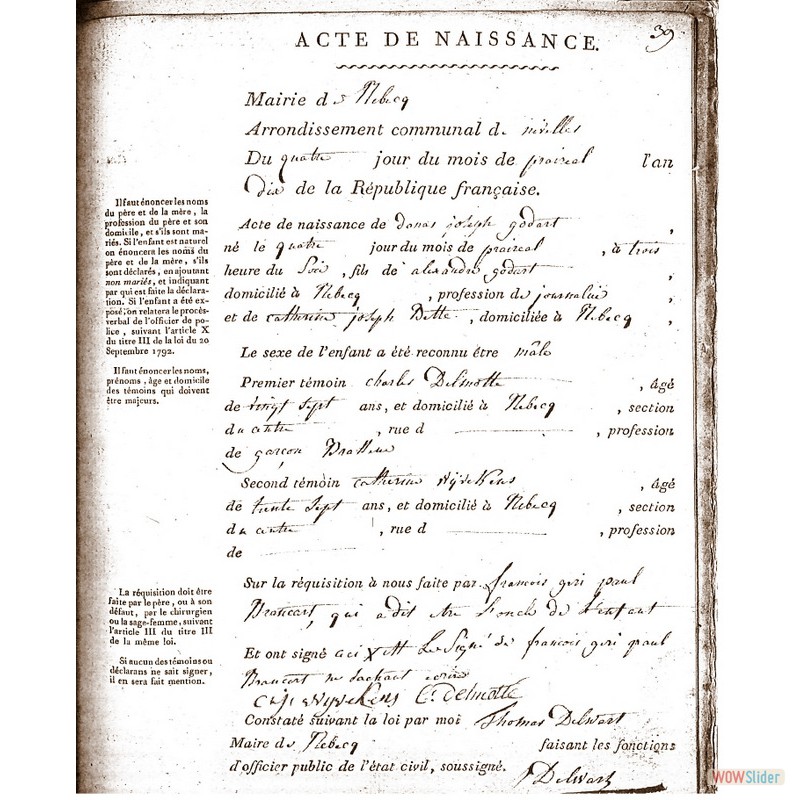 39
ACTE DE NAISSANCE.
Mairie de Rebecq
Arrondissement communal de nivelles
Du quatre jour du mois de praireal l'an
dix de la République française.
Il faut énoncer les noms
du père et de la mère, la
profession du père et son
domicile, et s'ils sont ma-
riés. Si l'enfant est naturel
on énoncera les noms du
père et de la mère, s'ils
sont déclarés, en ajoutant
non mariés, et indiquant
par qui est faite la déclara-
tion. Si l'enfant a été ex-
posé, on relatera le procès-
verbal de l'officier de po-
lice, suivant l'article X
du titre III de la loi du 20
Septembre 1792.
Il faut énoncer les noms,
prénoms, âge et domicile
des témoins qui doivent
être majeurs.
Acte de naissance de donas joseph godart ,
né le quatre jour du mois de praireal , à trois
heure du Soir , fils de alexandre godart ,
domicilié à Rebecq , profession de journalier ,
et de catherine joseph Dette , domiciliée à Rebecq ,
Le sexe de l'enfant a été reconnu être mâle
Premier témoin charles Delmotte , âgé
de vingt sept ans, et domicilié à Rebecq , section
du centre , rue d , profession
de garçon Brasseur
Second témoin catherine Wyvekens , âgé
de trente sept ans, et domicilié à Rebecq , section
du centre , rue d , profession
de
La réquisition doit être
faite par le père, ou à son
défaut, par le chirurgien
ou la sage-femme, suivant
l'article III du titre III
de la même loi.
Si aucun des témoins ou
déclarans ne sait signer,
il en sera fait mention.
Sur la réquisition à nous faite par francois paul
Brancart, qui a dit être l'oncle de l'enfant
Et ont signé ceci X est Le Signé de francois paul
Brancart ne sachant écrire
Wyvekens C. Delmotte
Constaté suivant la loi par moi Thomas Delwart
Maire de Rebecq faisant les fonctions
d'officier public de l'état civil, soussigné.
Delwart
WOWSlider